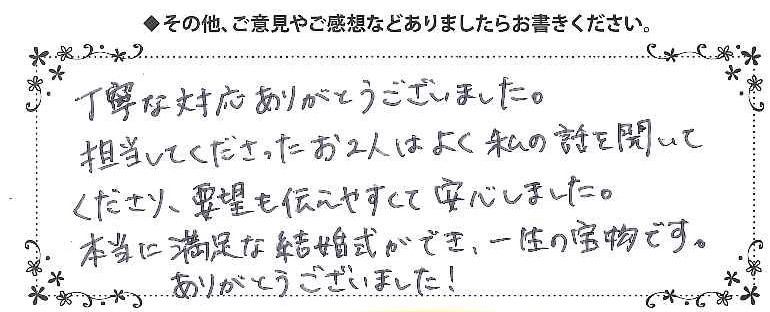 ◆その他、ご意見やご感想などありましたらお書きください。
丁寧な対応ありがとうございました。
担当してくださったお2人はよく私の話を聞いて
くださり、要望も伝えやすくて安心しました。
本当に満足な結婚式ができ、一生の宝物です。
ありがとうございました！